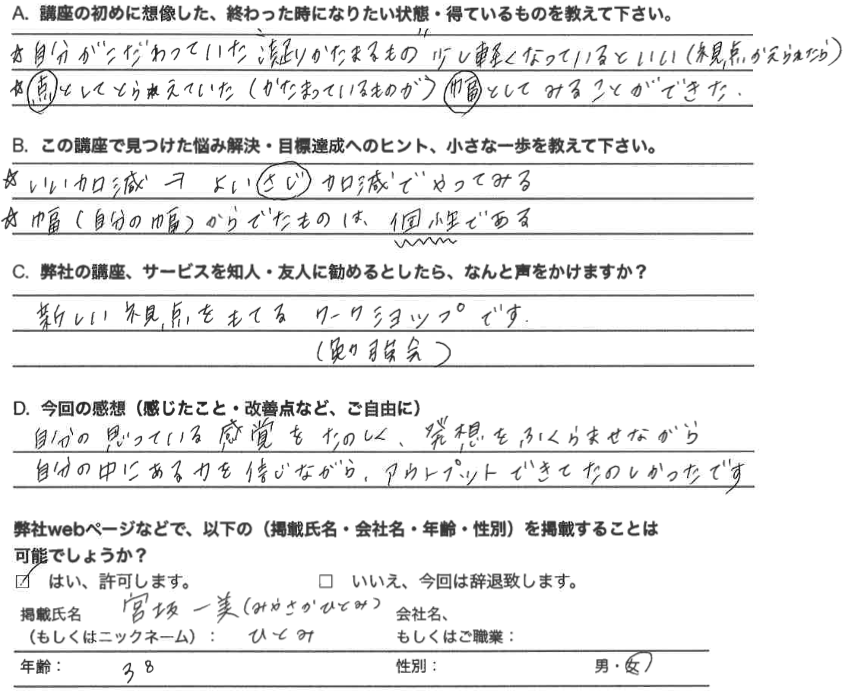 A. 講座の初めに想像した、終わった時になりたい状態・得ているものを教えて下さい。
☆自分がこだわっていた "凝りかたまるもの" 少し軽くなっているといい(視点がかえられたら)
☆点としてとらえていた(かたまっているものが) 幅としてみることができた.
B. この講座で見つけた悩み解決・目標達成へのヒント、小さな一歩を教えて下さい。
☆いい加減 → よいさじ加減でやってみる
☆幅(自分の幅)からでたものは、個性である
C. 弊社の講座、サービスを知人・友人に勧めるとしたら、なんと声をかけますか?
新しい視点をもてる ワークショップです.
(勉強会)
D. 今回の感想(感じたこと・改善点など、ご自由に)
自分の思っている感覚をたのしく、発想をふくらませながら
自分の中にある力を信じながら、アウトプットできてたのしかったです
弊社webページなどで、以下の(掲載氏名・会社名・年齢・性別)を掲載することは
可能でしょうか?
☑ はい、許可します。 □ いいえ、今回は辞退致します。
掲載氏名 宮坂一美(みやさかひとみ) 会社名、
(もしくはニックネーム): ひとみ もしくはご職業:
年齢: 38 性別: 男・女